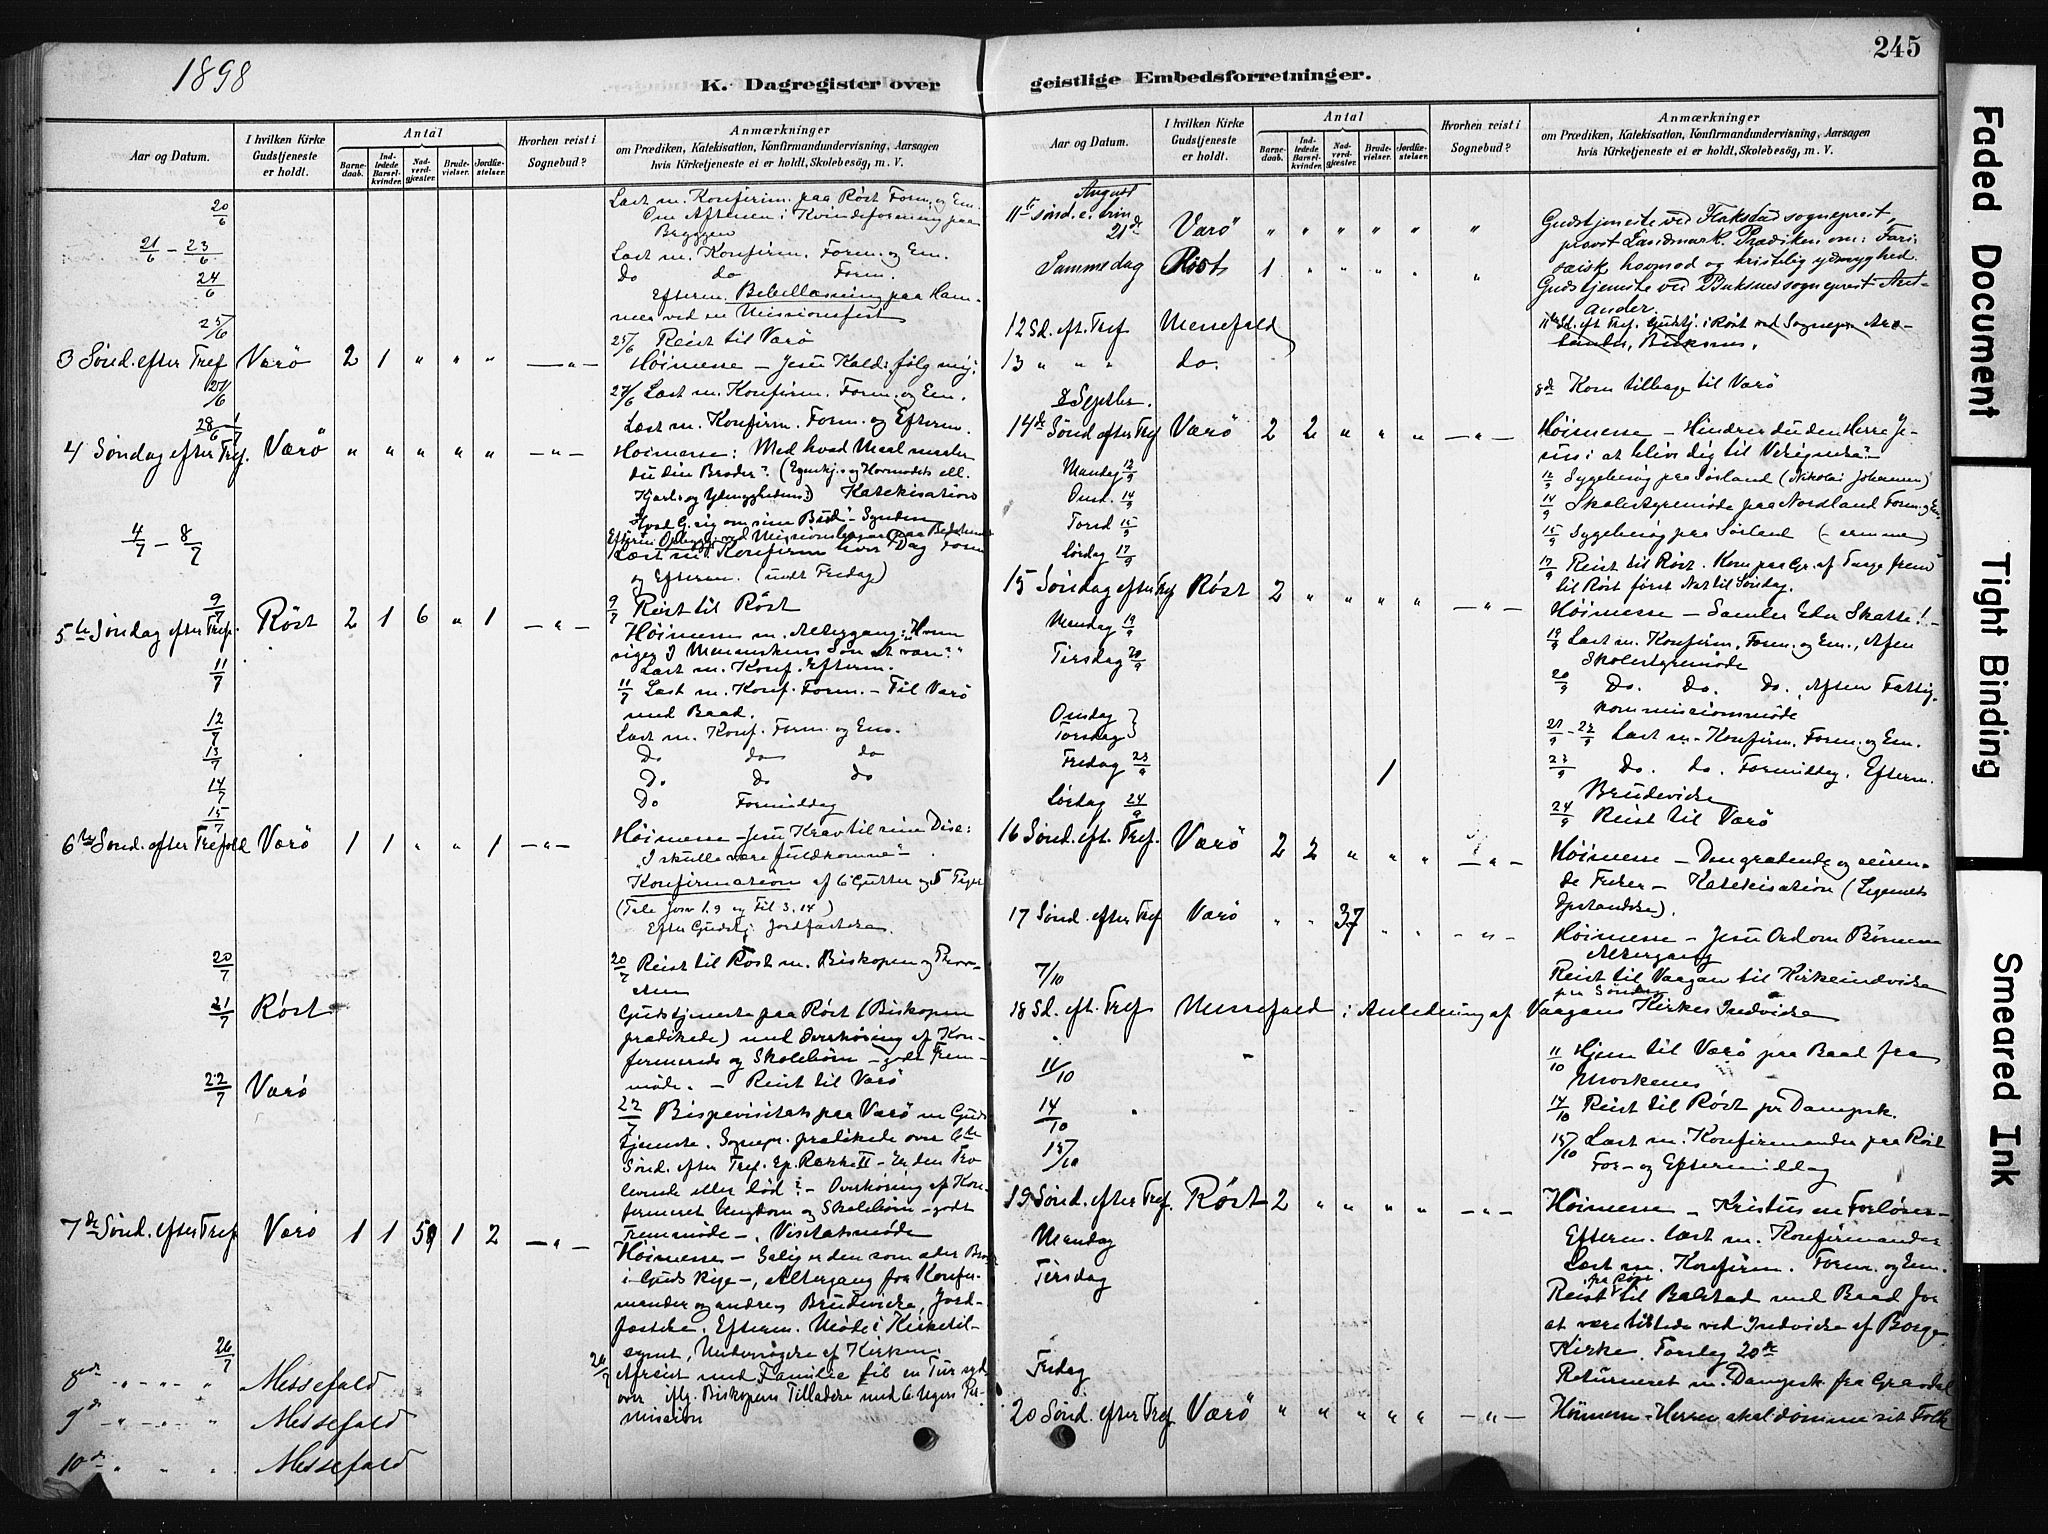 1898
K. Dagregister over
Aar og Datum.
I hvilken Kirke Gudstjeneste er holdt.
Antal
Barne-daab.
Ind-ledede Barsel-kvinder.
Nad-verd-gjæster.
Brude-vielser.
Jordfæ-stelser.
Hvorhen reist i Sognebud?
Anmærkninger
om Prædiken, Katekisation, Konfirmandundervisning, Aarsagen
hvis Kirketjeneste ei er holdt, Skolebesøg, m. V.
20/6 Læst m. Konfirm. paa Røst Form. og Em.
Om Aftenen i Kvindeforening paa
Bryggen
21/6 - 23/6 Læst m. Konfirm. Form. og Em.
24/6 Do do Form.
Efterm. Bibellæsning paa Ham-
mer ved en Missionsfest
25/6 25/6 Reist til Værö
3 Sønd. efter Tref Værö 2 1 " " " — " — Høimesse — Jesu Kald: følg mig.
27/6 27/6 Læst m. Konfirm. Form. og Em.
28/6 1/7 Læst m. Konfirm. Form. og Efterm.
4 Søndag efter Tref. Værö " " " " " — " — Høimesse: Med hvad Maal maaler
du din Broder?
Kjærl. og Ydmyghedens) Katekisation
Hvad G. sig om sine Bud - Synden
4/7 - 8/7 Læst m. Konfirm hver Dag Form
og Efterm. (undt. Fredag)
9/7 9/7 Reist til Røst
5te Søndag efter Tref. Røst 2 1 6 " 1 — " — Høimesse m. Altergang: Hvem
siger I Menneskens Søn at være?"
Læst m. Konf. Efterm.
11/7 11/7 Læst m. Konf. Form. — Til Værö
med Baad.
12/7 Læst m. Konf. Form. og Em.
13/7 Do do do
14/7 Do Do do
15/7 Do Formiddag
6te Sønd. efter Trefold Værö 1 1 " " 1 — " — Høimesse — Jesu Krav til sine Disc:
"I skulle være fuldkomne" —
Konfirmation af 6 Gutter og 5 Piger
(Tale Josv 1.9 og Fil 3.14)
Efter Gudstj. Jordfæstelse.
20/7 20/7 Reist til Røst m. Biskopen og Prov-
sten
21/7 Røst Gudstjeneste paa Røst (Biskopen
prædikede) med Overhøring af Kon-
firmerede og Skolebørn — godt Frem-
møde. — Reist til Værö
22/7 Værö 22/7 Bispevisitats paa Værö m Guds
tjeneste. Sognepr. prædikede over 6te
Sønd. efter Tref. Ep. Række II — Er den Tro
levende eller død? — Overhøring af Kon-
firmeret Ungdom og Skolebørn — godt
Fremmøde —. Visitatsmøde
7de Sønd. efter Tref Værö 1 1 59 1 2 — " — Høimesse — Salig er den som æder Brød
i Guds Rige —, Altergang for Konfir-
mander og andre, Brudevielse, Jord-
fæstelse. Efterm. Møde i Kirketil-
synet, Undersøgelse af Kirken.
26/7 26/7 Afreist med Familie til en Tur syd
8de " " " Messefald over iflg. Biskopens Tilladelse med 6 Ugers Per-
9de " " " Messefald mission
10de " " " Messefald
245
geistlige Embedsforretninger.
Aar og Datum.
I hvilken Kirke Gudstjeneste er holdt.
Antal
Barne-daab.
Ind-ledede Barsel-kvinder.
Nad-verd-gjæster.
Brude-vielser.
Jordfæ-stelser.
Hvorhen reist i Sognebud?
Anmærkninger
om Prædiken, Katekisation, Konfirmandundervisning, Aarsagen
hvis Kirketjeneste ei er holdt, Skolebesøg, m. V.
August
11te Sønd. e. Trin
21de Værö " " " " " " Gudstjeneste ved Flakstad sogneprest,
provst Landmark. Prædiken om: Fari-
sæisk hovmod og kristelig ydmyghed.
Samme dag Røst 1 " " " " " Gudstjeneste ved Buksnes sogneprest Art-
ander.
12 Sd. eft. Tref Messefald 11te Sd. eft Tref. Gudstj. i Røst ved Sognepr. Art-
ander, Buksnes.
13 " " " do.
8 Septbr. 8de Kom tilbage til Værö
14de Sønd efter Tref Værö 2 2 " " " — " — Høimesse — Hindrer du den Herre Je-
sus i at blive dig til Velsignelse?
Mandag 12/9 12/9 Sygebesøg paa Sørland (Nikolai Johansen)
Onsd. 14/9 14/9 Skolestyremøde paa Nordland Form. og Em.
Torsd 15/9 15/9 Sygebesøg paa Sørland (— samme)
Lørdag 17/9 17/9 Reist til Røst. Kom paa Gr. af Taage frem
til Røst først Nat til Søndag.
15 Søndag efter Tref Røst 2 " " " " — " — Høimesse — Samler Eder Skatte! —
Mandag 19/9 19/9 Læst m. Konfirm. Form. og Em., Aften
Skolestyremøde
Tirsdag 20/9 20/9 Do. Do. Do. Aften Fattig-
kommissionsmøde
Onsdag
Torsdag 21/9 - 22/9 Læst m. Konfirm. Form. og Em.
Fredag 23/9 1 23/9 Do. do. Formiddag. Efterm.
Brudevielse
Lørdag 24/9 24/9 Reist til Værö
16 Sønd. eft. Tref. Værö 2 2 " " " — " — Høimesse — Den grædende og seiren-
de Frelser — Katekisation (Legemets
Opstandelse).
17 Sønd. efter Tref Værö " " 37 " " — " — Høimesse — Jesu Ord om Børnene
Altergang
7/10 Reist til Vaagan til Kirkeindvielse
paa Søndag
18 Sd. eft. Tref Messefald i Anledning af Vaagans Kirkes Indvielse
11/10 11/10 Hjem til Værö paa Baad fra
Moskenes
14/10 14/10 Reist til Røst pr Dampsk.
15/10 15/10 Læst m. Konfirmander paa Røst
For- og Eftermiddag
19 Sønd. efter Tref. Røst 2 " " " " — " — Høimesse — Kristus en Forløser —
Efterm. læst m. Konfirmander
Mandag Læst m. Konfirm. Form. og Em.
Tirsdag Reist fra Røst til Balstad med Baad for
at være tilstede ved Indvielse af Borge
Kirke. Torsdag 20de
Fredag Returneret m. Dampsk. fra Gravdal
20 Sønd. efter Tref Værö " " " " " — " — Høimesse — Herren skal dømme sit Folk
Faded Document
Tight Binding
Smeared Ink